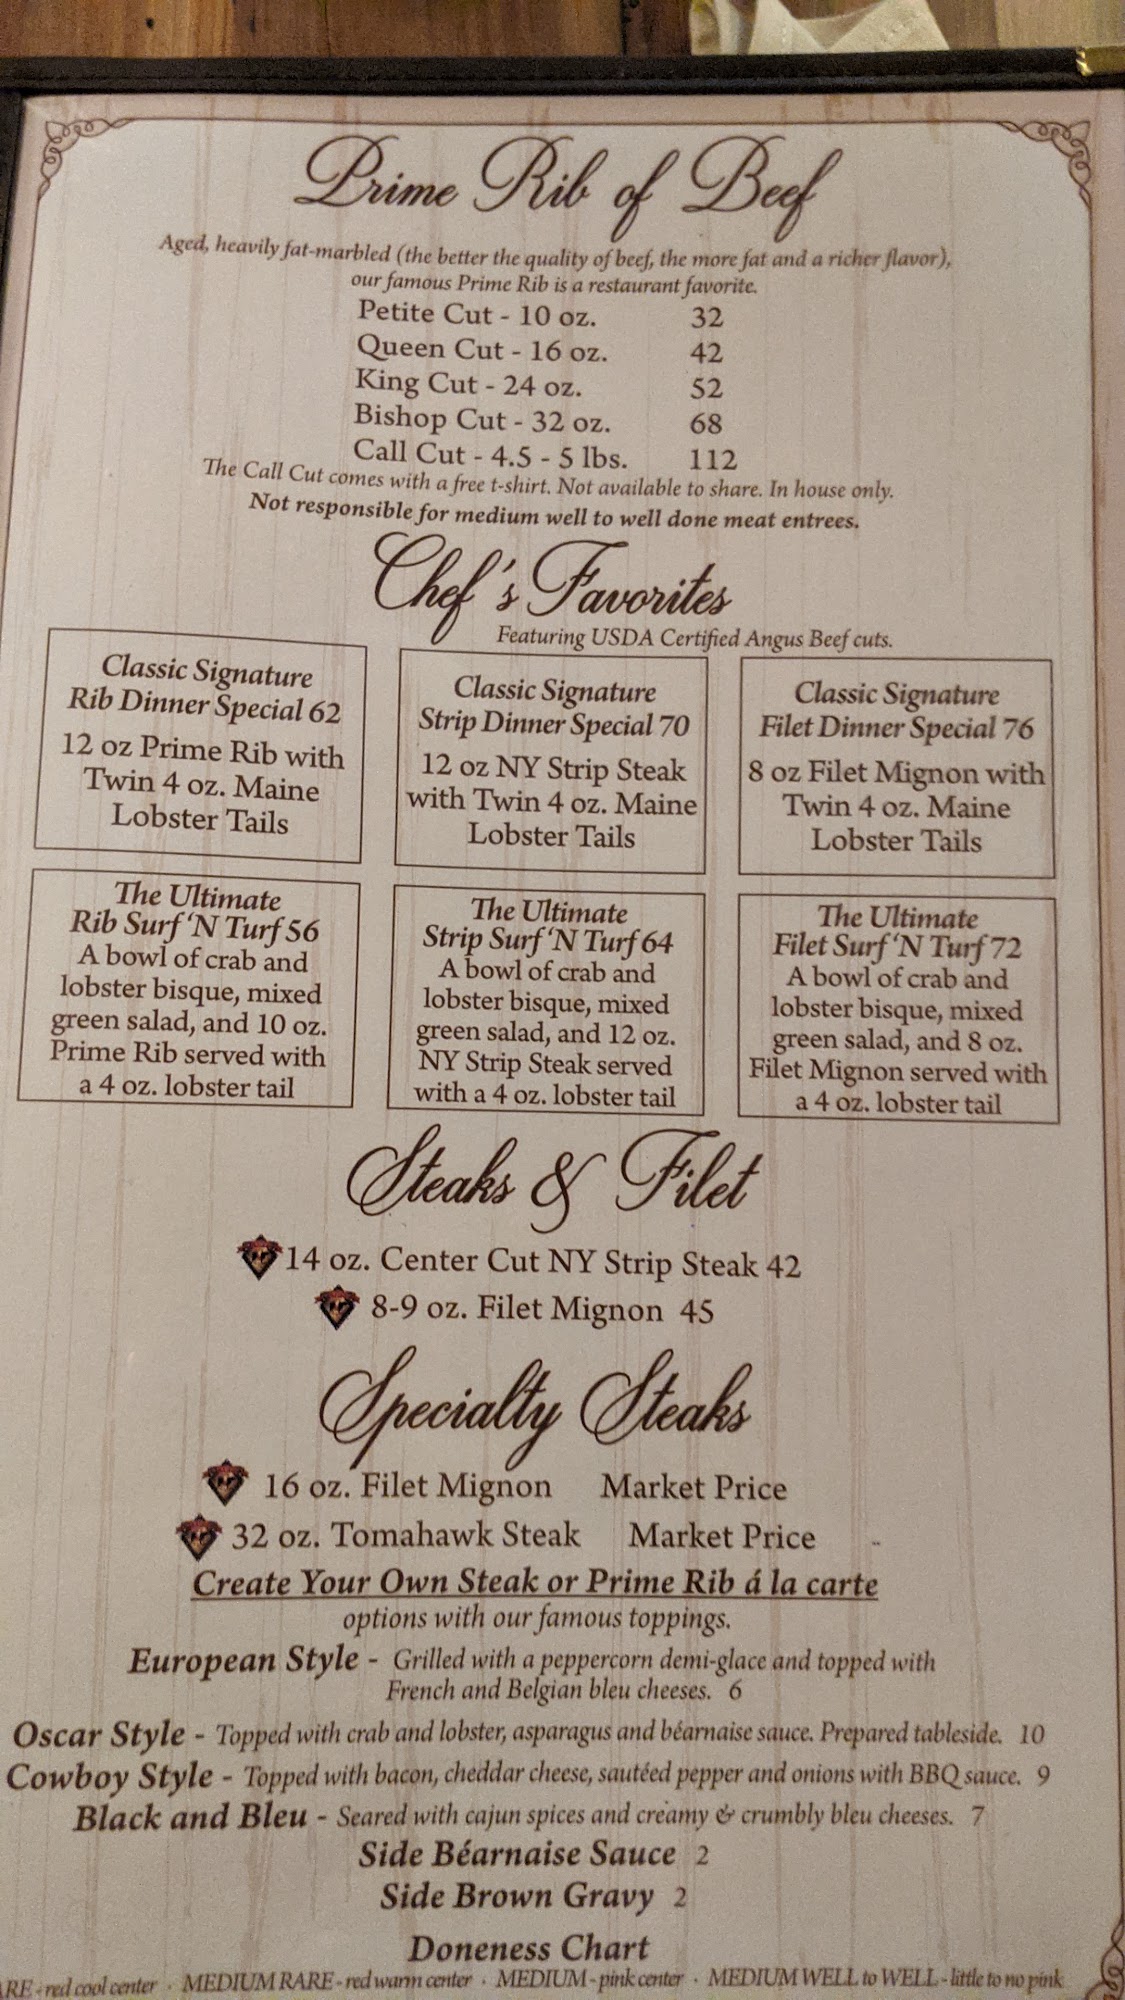 Prime Rib of Beef
Aged, heavily fat-marbled (the better the quality of beef, the more fat and a richer flavor),
our famous Prime Rib is a restaurant favorite.
Petite Cut - 10 oz. 32
Queen Cut - 16 oz. 42
King Cut - 24 oz. 52
Bishop Cut - 32 oz. 68
Call Cut - 4.5 - 5 lbs. 112
The Call Cut comes with a free t-shirt. Not available to share. In house only.
Not responsible for medium well to well done meat entrees.
Chef's Favorites
Featuring USDA Certified Angus Beef cuts.
Classic Signature
Rib Dinner Special 62
12 oz Prime Rib with
Twin 4 oz. Maine
Lobster Tails
Classic Signature
Strip Dinner Special 70
12 oz NY Strip Steak
with Twin 4 oz. Maine
Lobster Tails
Classic Signature
Filet Dinner Special 76
8 oz Filet Mignon with
Twin 4 oz. Maine
Lobster Tails
The Ultimate
Rib Surf 'N Turf 56
A bowl of crab and
lobster bisque, mixed
green salad, and 10 oz.
Prime Rib served with
a 4 oz. lobster tail
The Ultimate
Strip Surf 'N Turf 64
A bowl of crab and
lobster bisque, mixed
green salad, and 12 oz.
NY Strip Steak served
with a 4 oz. lobster tail
The Ultimate
Filet Surf 'N Turf 72
A bowl of crab and
lobster bisque, mixed
green salad, and 8 oz.
Filet Mignon served with
a 4 oz. lobster tail
Steaks & Filet
14 oz. Center Cut NY Strip Steak 42
8-9 oz. Filet Mignon 45
Specialty Steaks
16 oz. Filet Mignon Market Price
32 oz. Tomahawk Steak Market Price
Create Your Own Steak or Prime Rib á la carte
options with our famous toppings.
European Style - Grilled with a peppercorn demi-glace and topped with
French and Belgian bleu cheeses. 6
Oscar Style - Topped with crab and lobster, asparagus and béarnaise sauce. Prepared tableside. 10
Cowboy Style - Topped with bacon, cheddar cheese, sautéed pepper and onions with BBQ sauce. 9
Black and Bleu - Seared with cajun spices and creamy & crumbly bleu cheeses. 7
Side Béarnaise Sauce 2
Side Brown Gravy 2
Doneness Chart
ARE - red cool center · MEDIUM RARE - red warm center · MEDIUM - pink center · MEDIUM WELL to WELL - little to no pink